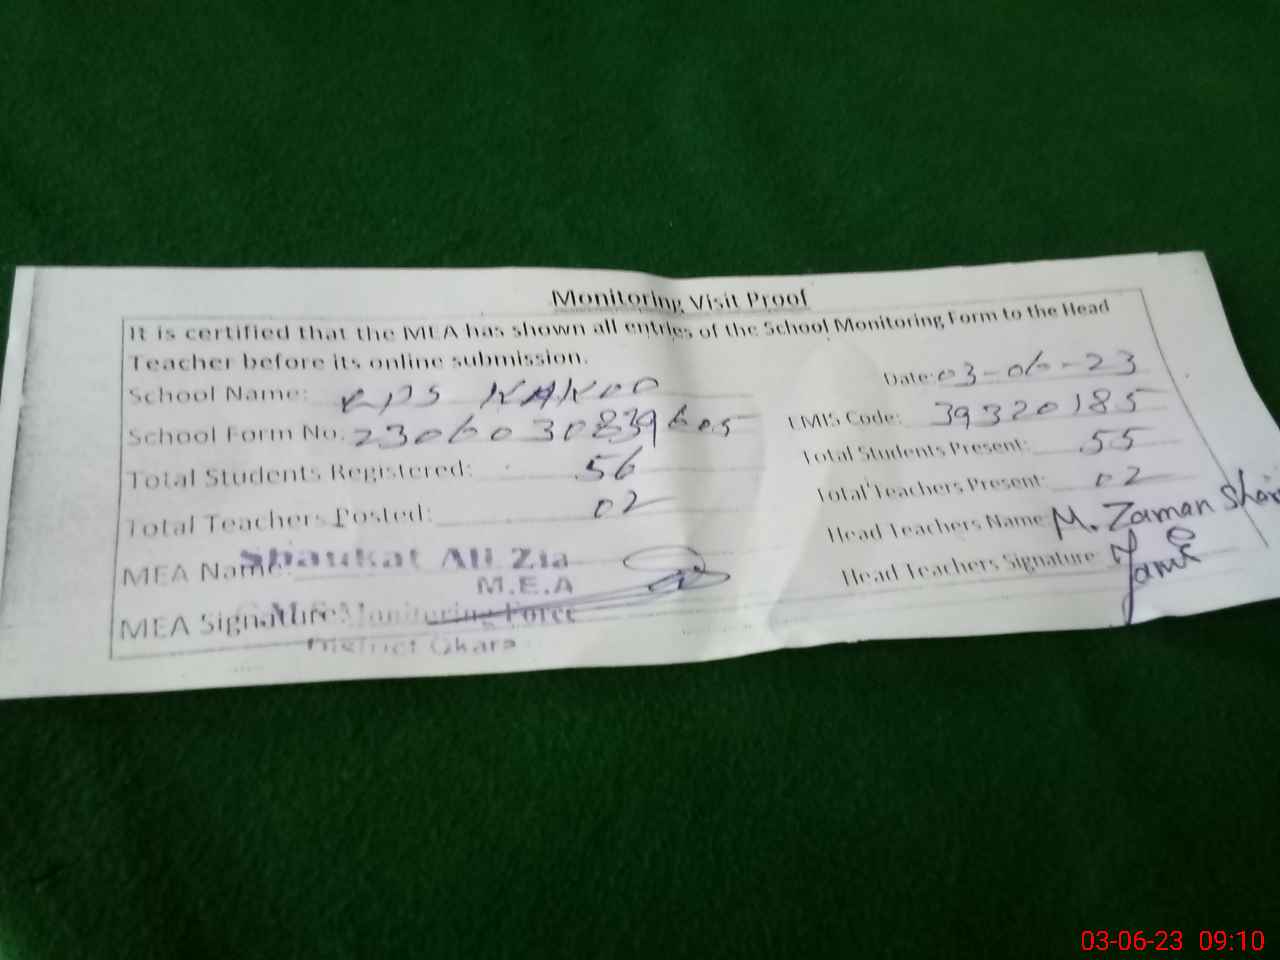 Monitoring Visit Proof
It is certified that the MEA has shown all entries of the School Monitoring Form to the Head
Teacher before its online submission.
School Name: GPS KAKOO
Date: 03-06-23
School Form No. 23060308396605
EMIS Code: 39320185
Total Students Registered: 56
Total Students Present: 55
Total Teachers Posted: 02
Total Teachers Present: 02
MEA Name: Shaukat Ali Zia
Head Teachers Name: M. Zaman
M.E.A
MEA Signature Monitoring Force
Head Teachers Signature:
District
03-06-23 09:10